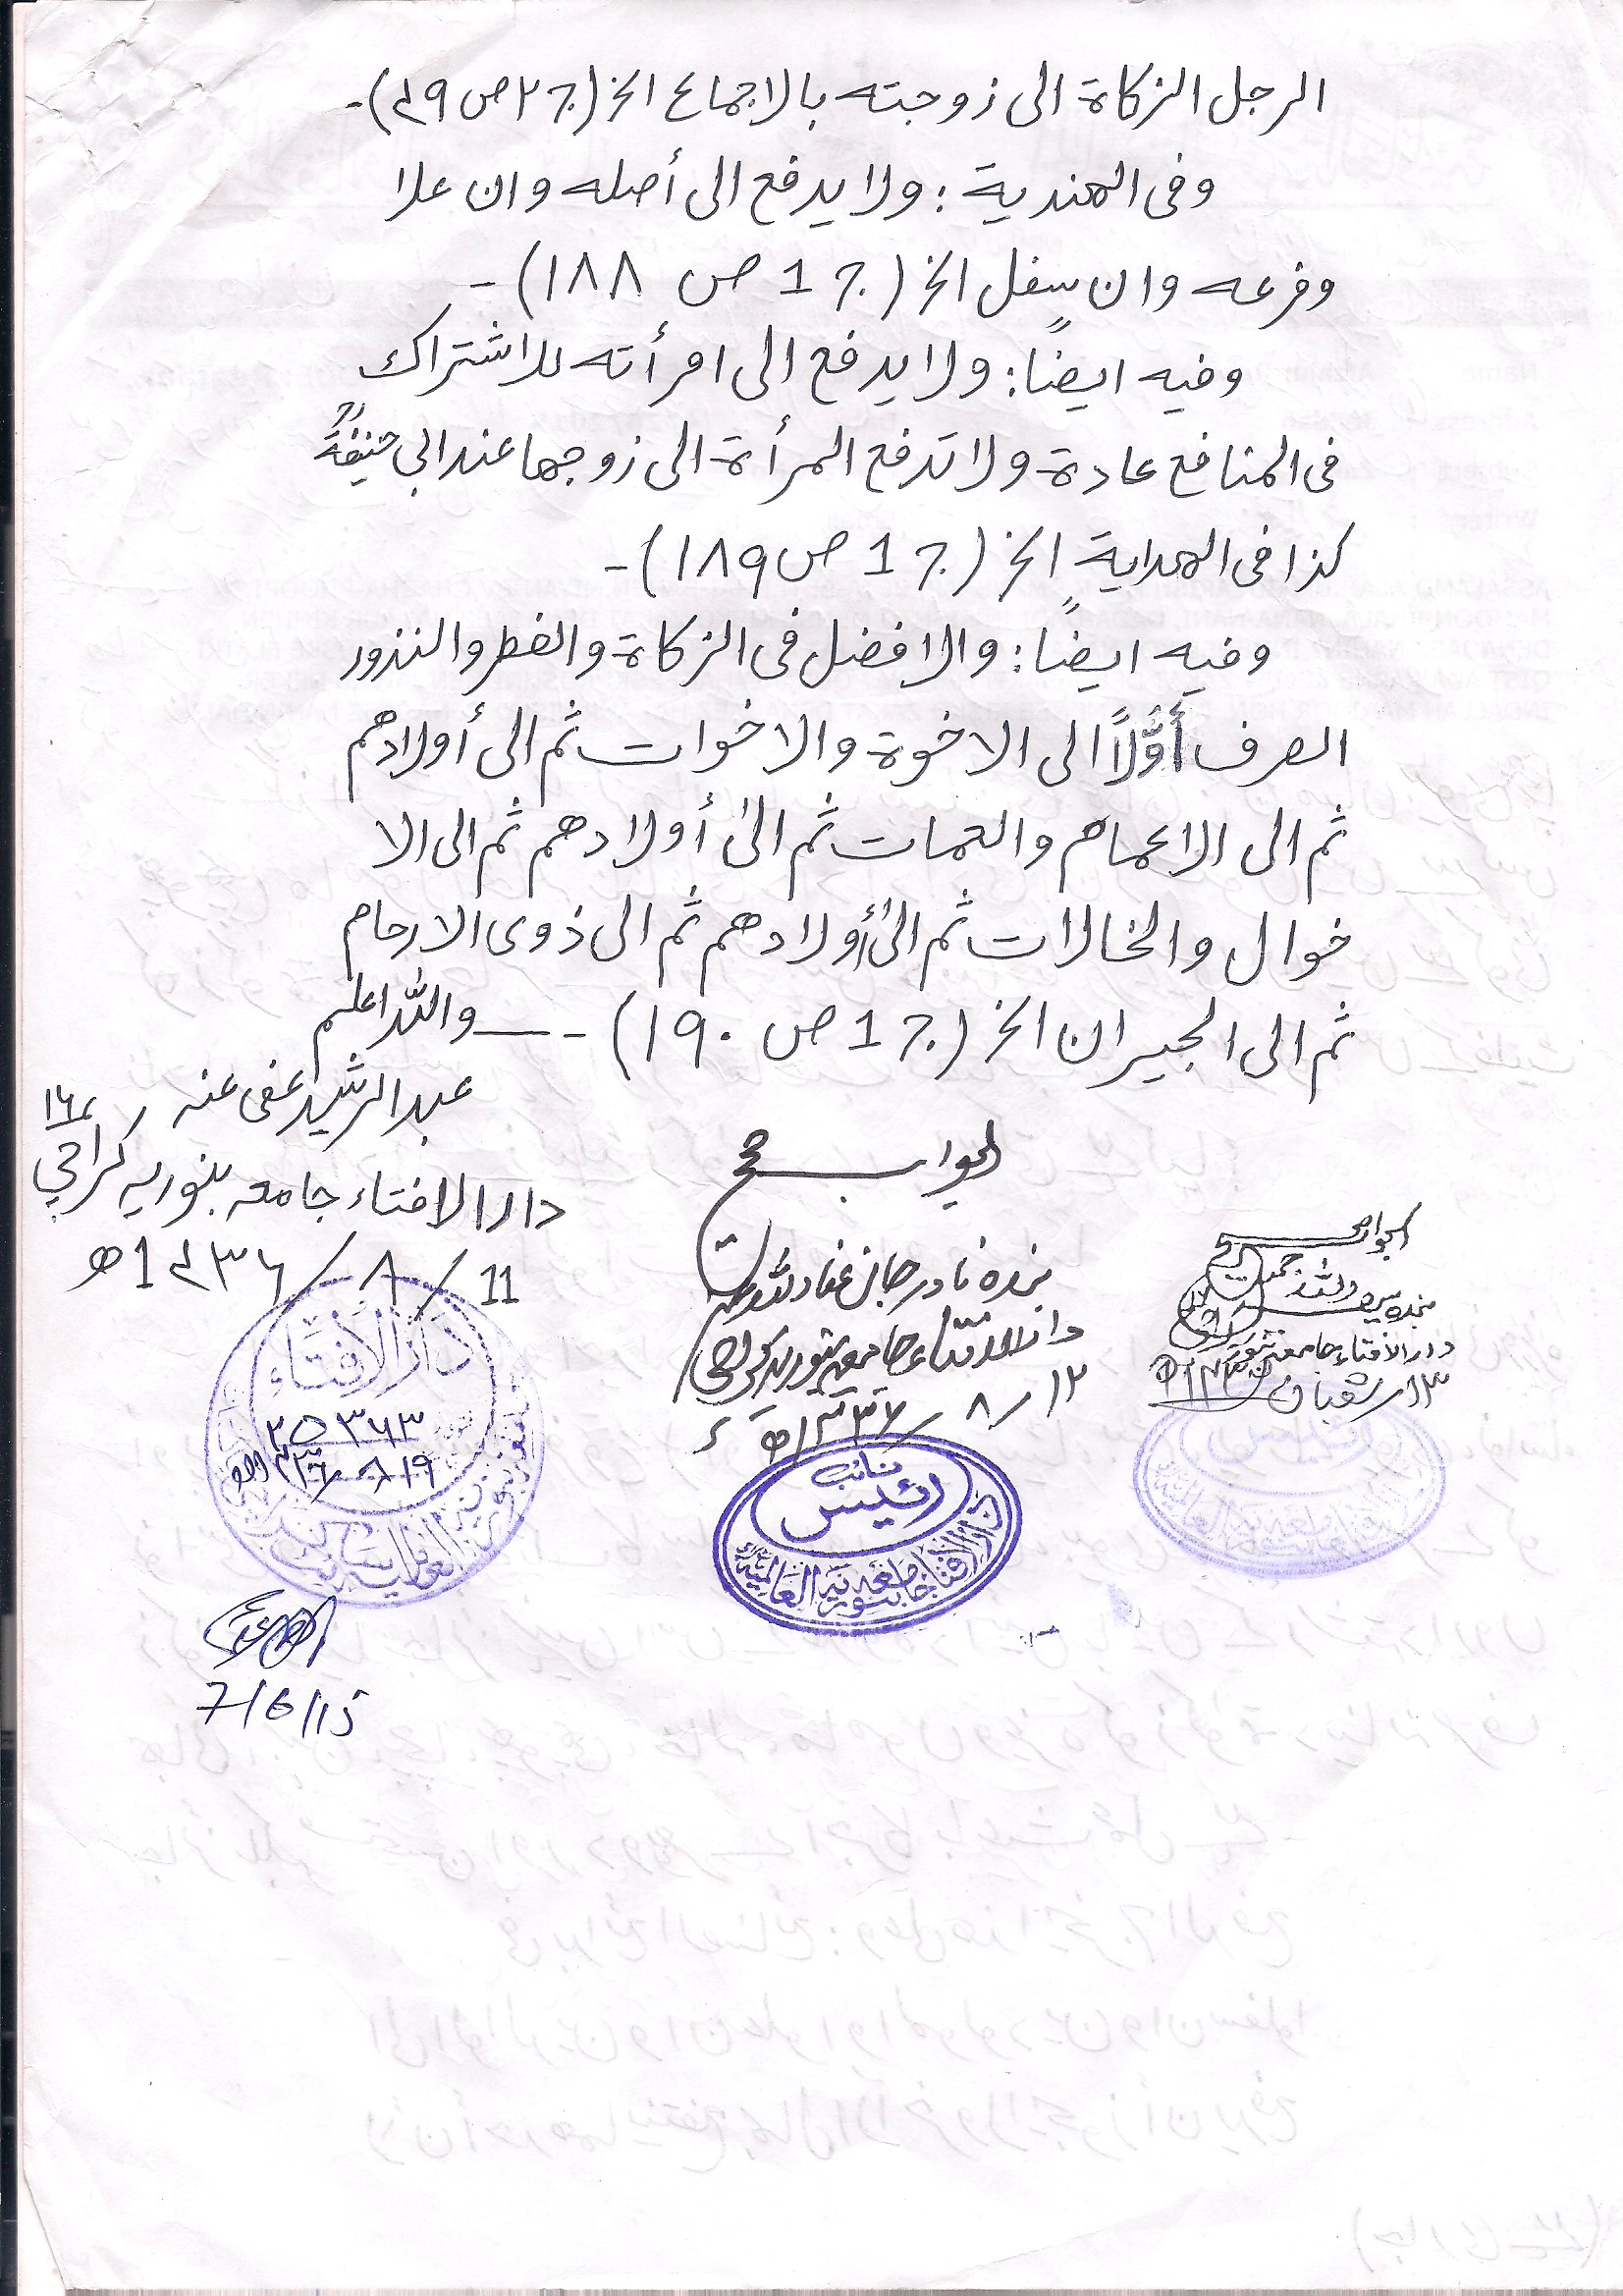 الرجل الزكاة الى زوجته بالاجماع الخ (ج ٢ ص ٤٩)-
وفى الهندية : ولا يدفع الى أصله وان علا
وفرعه وان سفل الخ (ج 1 ص ١٨٨)-
وفيه ايضًا: ولا يدفع الى امرأته للاشتراك
فى المنافع عادة ولا تدفع المرأة الى زوجها عند ابي حنيفةؒ
كذا فى الهداية الخ (ج 1 ص ١٨٩)-
وفيه ايضًا: والافضل فى الزكاة والفطر والنذور
الصرف أوّلاً الى الاخوة والاخوات ثم الى أولادهم
ثم الى الاعمام والعمات ثم الى أولادهم ثم الى الا
خوال والخالات ثم الى أولادهم ثم الى ذوى الارحام
ثم الى الجيران الخ (ج 1 ص ١٩٠)- والله اعلم
عبد الرشيد عفى عنہ
دار الافتاء جامعہ بنوریہ کراچی
11 / ٨ / 1٤٣٦ھ
الجواب صحیح
بندہ نادر جان عفا اللہ عنہ
دار الافتاء جامعہ بنوریہ کراچی
١٢ / ٨ / ١٤٣٦ھ
الجواب صحیح
دار الافتاء جامعہ بنوریہ
١٣ شعبان
دار الافتاء
٢٥٣٦٣
١٩ ٨ ١٤٣٦ھ
نائب
رئيس
دار الافتاء جامعه بنوريه العالمية
رئيس
7/6/15